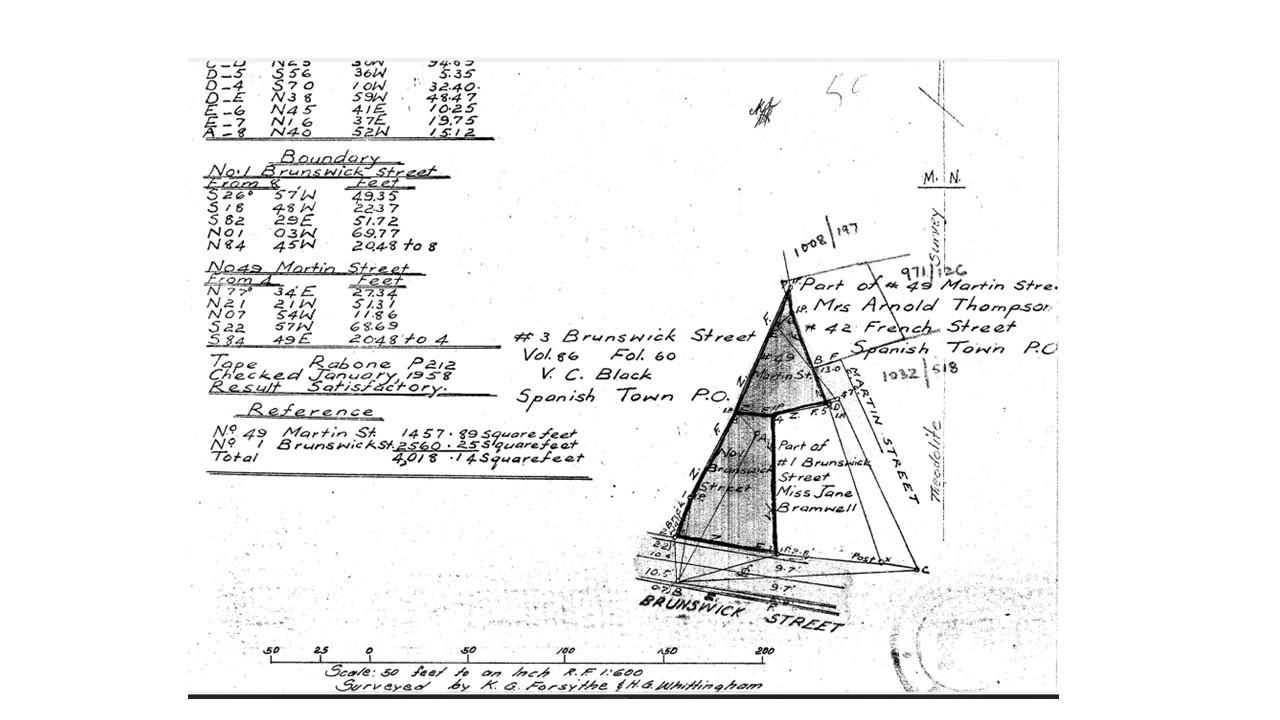 D_5 S56 36W 5.35
D_4 S70 10W 32.40
D_E N38 59W 48.47
E_6 N45 41E 10.25
E_7 N16 37E 19.75
A_8 N40 52W 15.12
Boundary
No.1 Brunswick Street
From 8 Feet
S26° 57'W 49.35
S18 48W 22.37
S82 29E 51.72
N01 03W 69.77
N84 45W 20.48 to 8
No49 Martin Street
From 4 Feet
N77° 34'E 27.34
N21 21W 51.31
N07 54W 11.86
S22 57W 68.69
S84 49E 20.48 to 4
Tape Rabone P212
Checked January, 1958
Result Satisfactory.
Reference
Nº 49 Martin St. 1457.89 Square feet
Nº 1 Brunswick St. 2560.25 Square feet
Total 4,018.14 Square feet
M. N.
Theodolite Survey
1008/197
971/126
Part of # 49 Martin Stre
Mrs Arnold Thompson
# 42 French Street
Spanish Town P.O
1032/518
# 3 Brunswick Street
Vol. 86 Fol. 60
V. C. Black
Spanish Town P.O.
#49
Martin St.
B F
13.0
MARTIN STREET
No1
Brunswick
Street
Part of
#1 Brunswick
Street
Miss Jane
Bramwell
Post
C
10.5
9.7'
9.7'
BRUNSWICK STREET
50 25 0 50 100 150 200
Scale: 50 feet to an Inch R.F 1:600
Surveyed by K. G. Forsythe & H.G. Whittingham